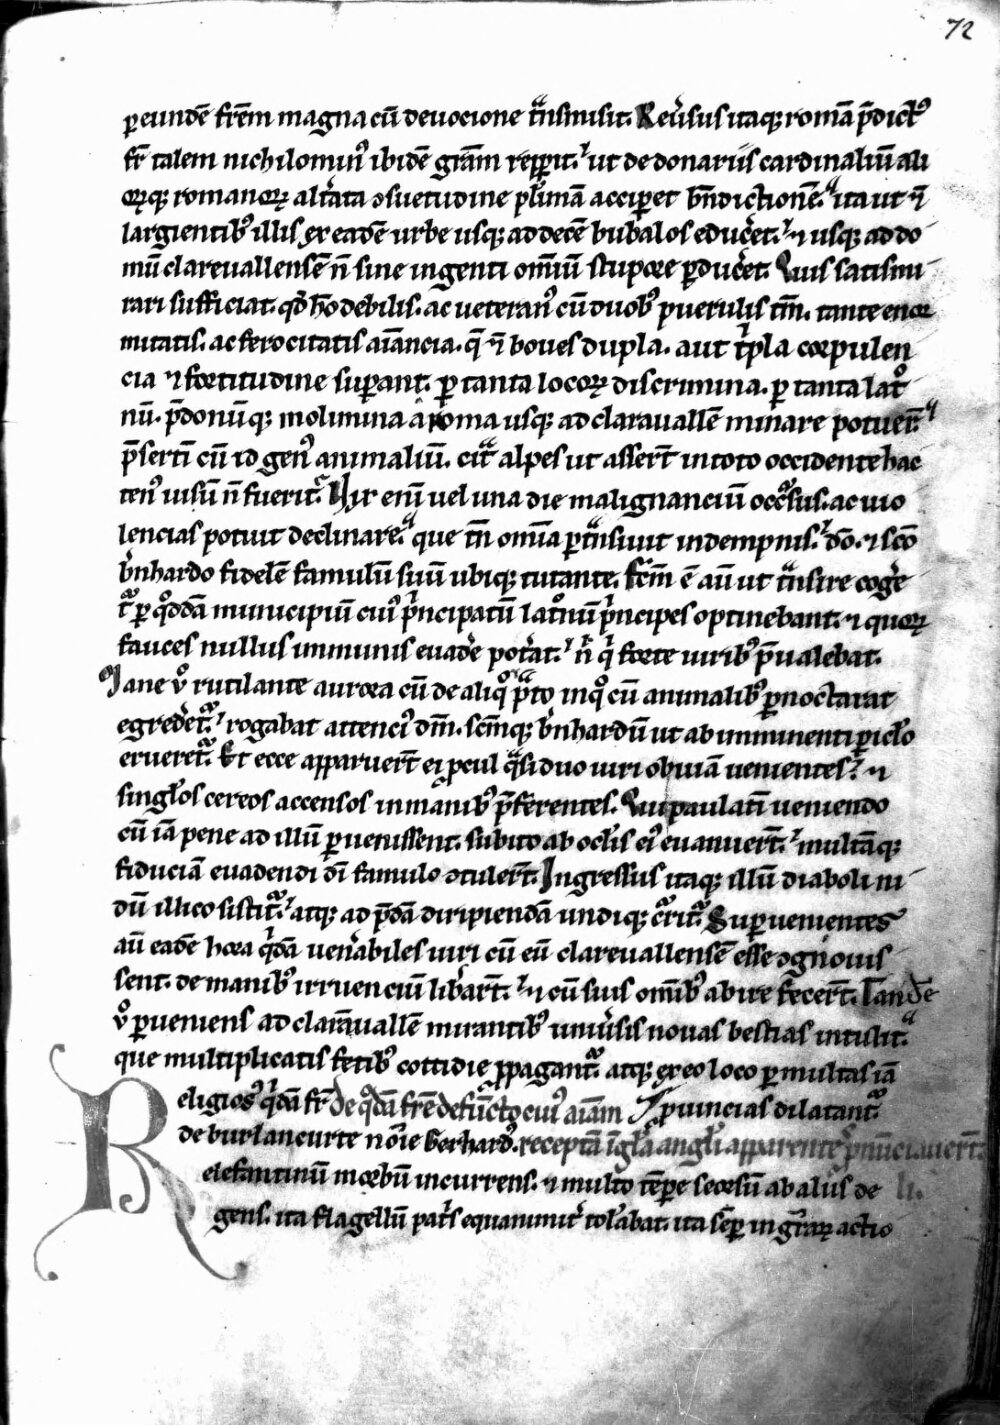 72
ꝑ eundē frēm magna cū deuocione tͣnsmisit. Reu̓sus itaqꝫ romā p̄dictꝰ
fr̄ talem nichilominꝰ ibidē gr̄am repꝑit. ut de donariis cardinaliū ali
oꝝqꝫ romanoꝝ alt̓ata ꝯsuetudine pl̓imā acciꝑet bn̄dictionē. ita ut n̄
largientibꝰ illis ex eadē urbe usqꝫ ad decē bubalos educ̓et. ⁊ usqꝫ ad do
mū clareuallensē n̄ sine ingenti om̄iū stupore ꝑduc̓et. Quis satis mi
rari sufficiat. qd̓ hō debilis. ac ueteranꝰ cū duobꝰ puerulis tm̄. tante enor
mitatis. ac ferocitatis aīancia. q̄ ⁊ boues dupla. aut tͥpla corpulen
cia ⁊ fortitudine suꝑant. ꝑ tanta locoꝝ discrimina. ꝑ tanta latͦ
nū. p̄donūqꝫ molimina a roma usqꝫ ad clarauallē minare potuer̄t
p̄sertī cū id genꝰ animaliū. citͣ alpes ut asser̄t in toto occidente hac
tenꝰ uisū n̄ fuerit. Hyr enī uel una die malignanciū occͣsus. ac uio
lencias potuit declinare. que tn̄ om̄ia ꝑtͣnsiuit indempnis. dō. ⁊ sc̄o
b̓nhardo fidelē famulū suū ubiqꝫ tutante. fc̄m ē aū ut tͣnsire coge
tͣ ꝑ qͦddā municipiū cuiꝰ pͥncipatū latͦnū pͥncipes optinebant. ⁊ quoꝝ
fauces nullus immunis euad̓e pot̓at. n̄ qͥ forte uiribꝰ p̄ualebat.
Mane v̓ rutilante aurora cū de aliqͦ pͣto inqͦ cū animalibꝰ ꝑnoctarat
egred̓etͣ. rogabat attenciꝰ dm̄. scm̄qꝫ b̓nhardū ut ab imminenti ꝑicl̓o
erueretͣ. Et ecce apparuer̄t ei ꝓcul qͣsi duo uiri obuiā uenientes. ⁊
singl̓os cereos accensos in manibꝰ p̄ferentes. Qui paulatī ueniendo
cū iā pene ad illū ꝑuenissent. subito ab ocl̓is eiꝰ euanuer̄t. multāqꝫ
fiduciā euadendi dī famulo ꝯtuler̄t. Ingressus itaqꝫ illū diaboli ni
dū illico sistitͣ. atqꝫ ad p̄dā diripiendā undiqꝫ cͣritͣ. Suꝑuenientes
aū eadē hora qͥdā uen̓abiles uiri cū eū clareuallensē esse ꝯgnouis
sent. de manibꝰ irruenciū lib̓ar̄t. ⁊ cū suis om̄ibꝰ abire fecer̄t. Tandē
v̓ ꝑueniens ad clarāuallē mirantibꝰ uniu̓sis nouas bestias intulit.
que multiplicatis fetibꝰ cottidie ꝓpagantͣ. atqꝫ ex eo loco ꝑ multas iā
Religiosꝰ qͥdā fr̄ De qͦdā fr̄e defūcto cuiꝰ aīam ꝓuincias dilatantͣ
de burlancurte nōie Gerhardꝰ. receptā ī gl̓ia angl̓i apparente pͥnūciauer̄t.
elefantinū morbū incurrens. ⁊ multo tēꝑe seorsū ab aliis de li.
gens. ita flagellū pat̓s equanimit̓ tol̓abat. ita sēꝑ in gr̄aꝝ actio